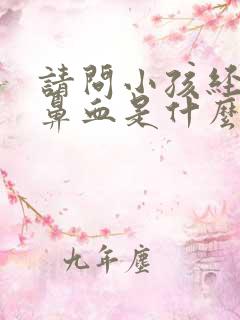 請問小孩經
鼻血是什麼
九年塵